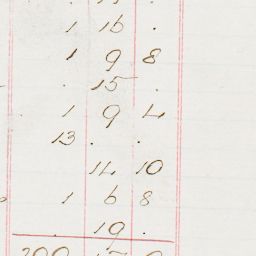 1 16 .
1 9 8
. 15 .
1 9 4
13 . .
14 10
1 6 8
. 19 .